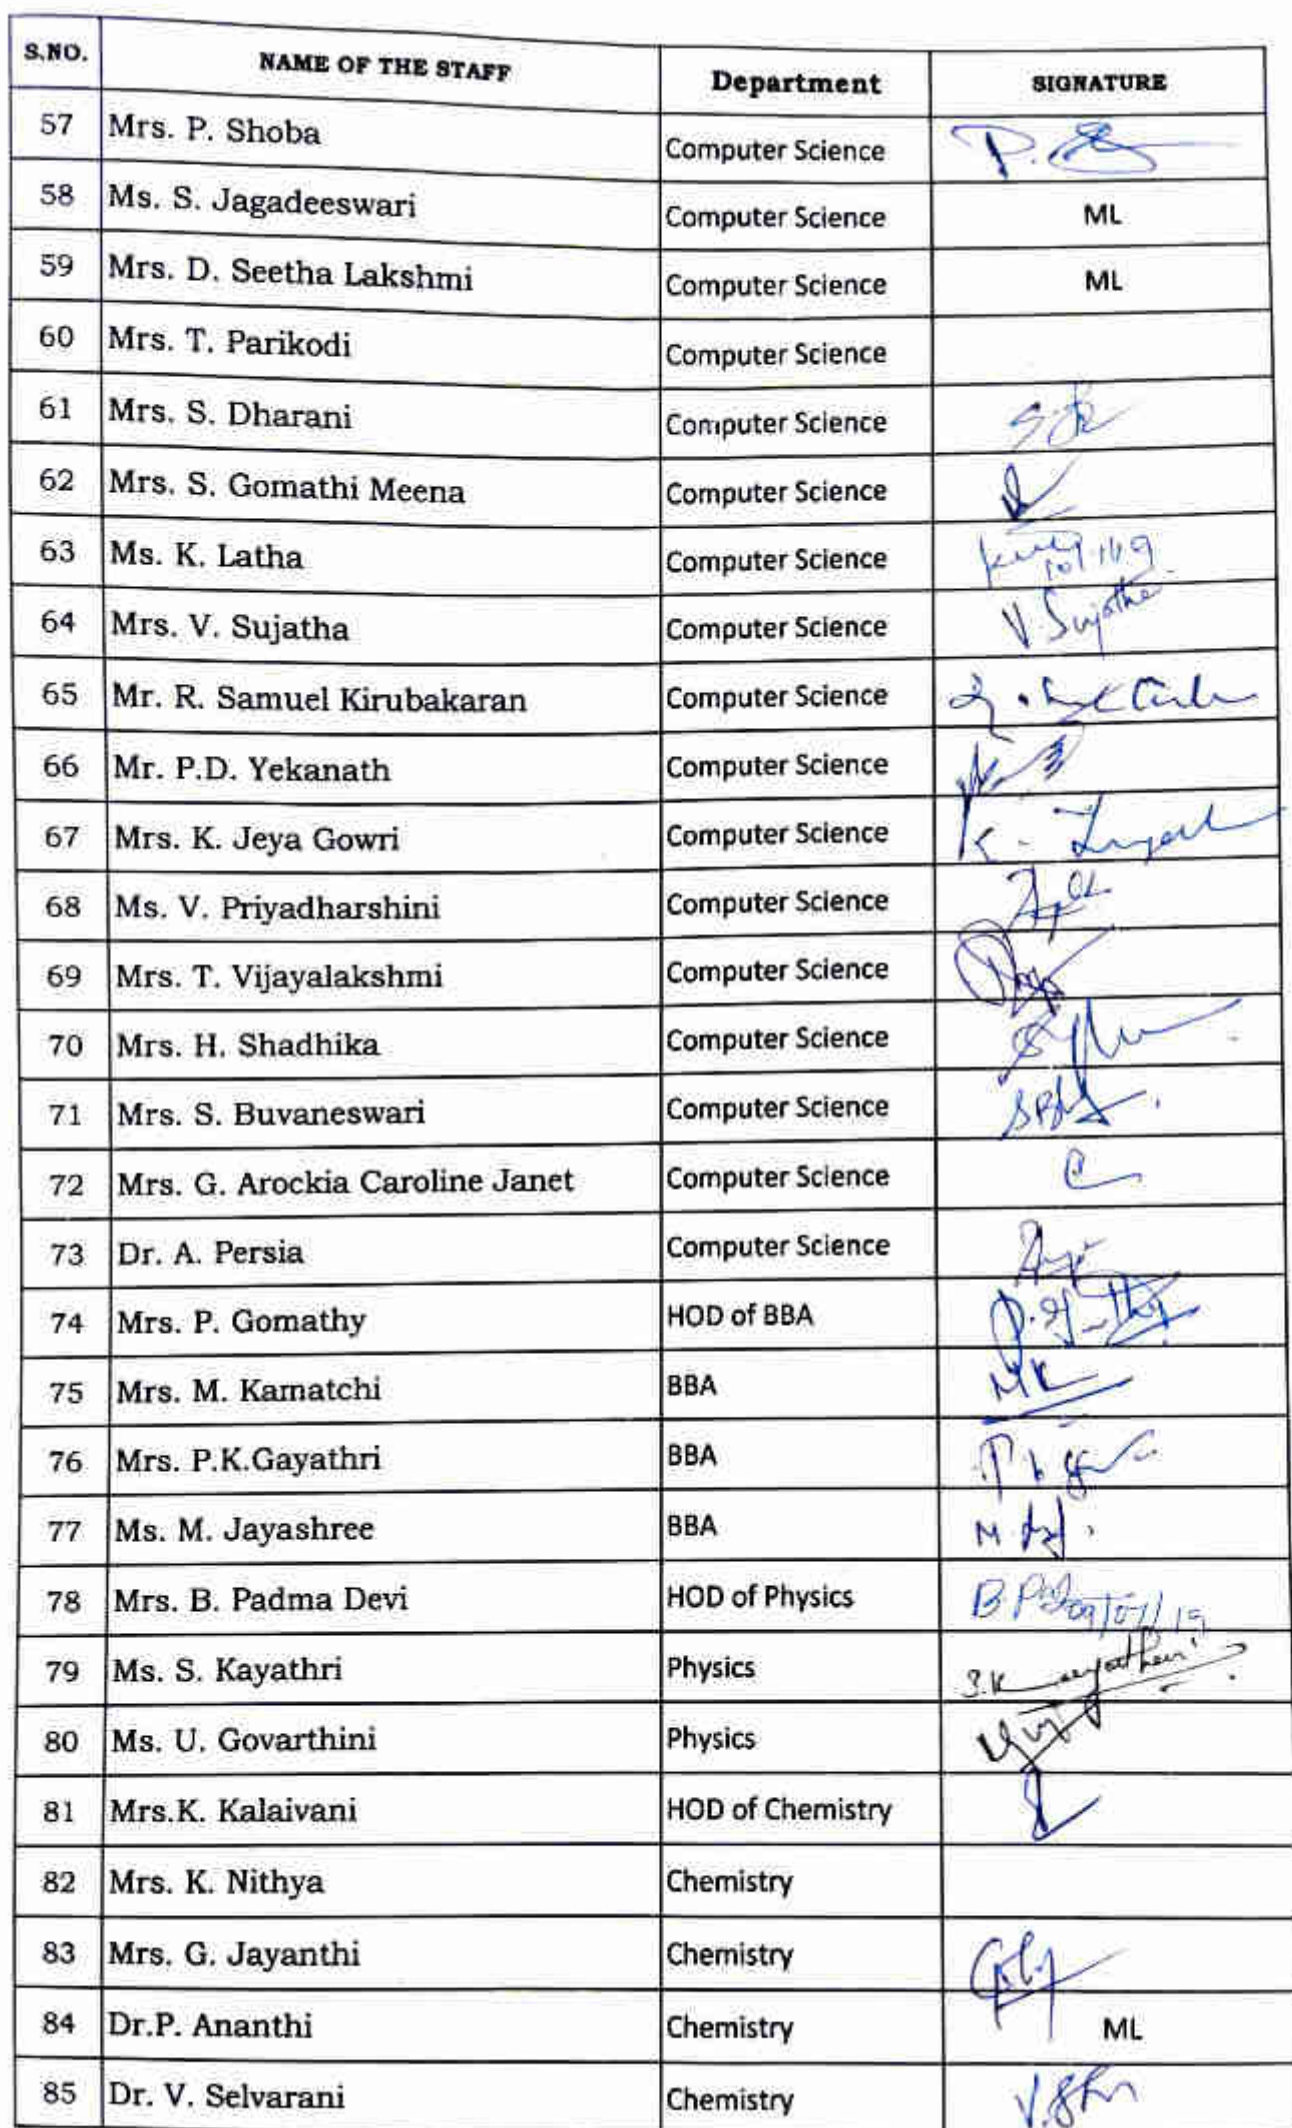 S.NO. NAME OF THE STAFF Department SIGNATURE
57 Mrs. P. Shoba Computer Science P.
58 Ms. S. Jagadeeswari Computer Science ML
59 Mrs. D. Seetha Lakshmi Computer Science ML
60 Mrs. T. Parikodi Computer Science
61 Mrs. S. Dharani Computer Science
62 Mrs. S. Gomathi Meena Computer Science
63 Ms. K. Latha Computer Science
64 Mrs. V. Sujatha Computer Science V. Sujatha
65 Mr. R. Samuel Kirubakaran Computer Science
66 Mr. P.D. Yekanath Computer Science
67 Mrs. K. Jeya Gowri Computer Science
68 Ms. V. Priyadharshini Computer Science
69 Mrs. T. Vijayalakshmi Computer Science
70 Mrs. H. Shadhika Computer Science
71 Mrs. S. Buvaneswari Computer Science
72 Mrs. G. Arockia Caroline Janet Computer Science
73 Dr. A. Persia Computer Science
74 Mrs. P. Gomathy HOD of BBA
75 Mrs. M. Kamatchi BBA MK
76 Mrs. P.K.Gayathri BBA
77 Ms. M. Jayashree BBA
78 Mrs. B. Padma Devi HOD of Physics 09/07/19
79 Ms. S. Kayathri Physics
80 Ms. U. Govarthini Physics
81 Mrs.K. Kalaivani HOD of Chemistry
82 Mrs. K. Nithya Chemistry
83 Mrs. G. Jayanthi Chemistry
84 Dr.P. Ananthi Chemistry ML
85 Dr. V. Selvarani Chemistry